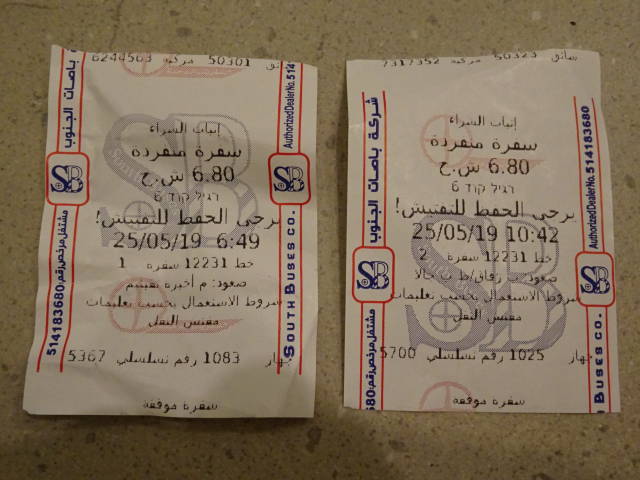 سائق 50301 مركبة 6244503
إثبات الشراء
سفرة منفردة
6.80 ش.ح
رغيل كود 6
يرجى الحفظ للتفتيش!
25/05/19 6:49
خط 12231 سفرة 1
صعود:
شروط الاستعمال بحسب تعليمات
مفتش النقل
جهاز 1083 رقم تسلسلي 5367
سفرة موفقة
باصات الجنوب
مشتغل مرخص رقم: 514183680
Authorized Dealer No. 514
SB
SOUTH BUSES CO.
سائق 50323 مركبة 7317352
إثبات الشراء
سفرة منفردة
6.80 ش.ح
رغيل كود 6
يرجى الحفظ للتفتيش!
25/05/19 10:42
خط 12231 سفرة 2
صعود:
شروط الاستعمال بحسب تعليمات
مفتش النقل
جهاز 1025 رقم تسلسلي 5700
سفرة موفقة
شركة باصات الجنوب
مشتغل مرخص رقم: 680
Authorized Dealer No. 514183680
SB
BUSES CO.